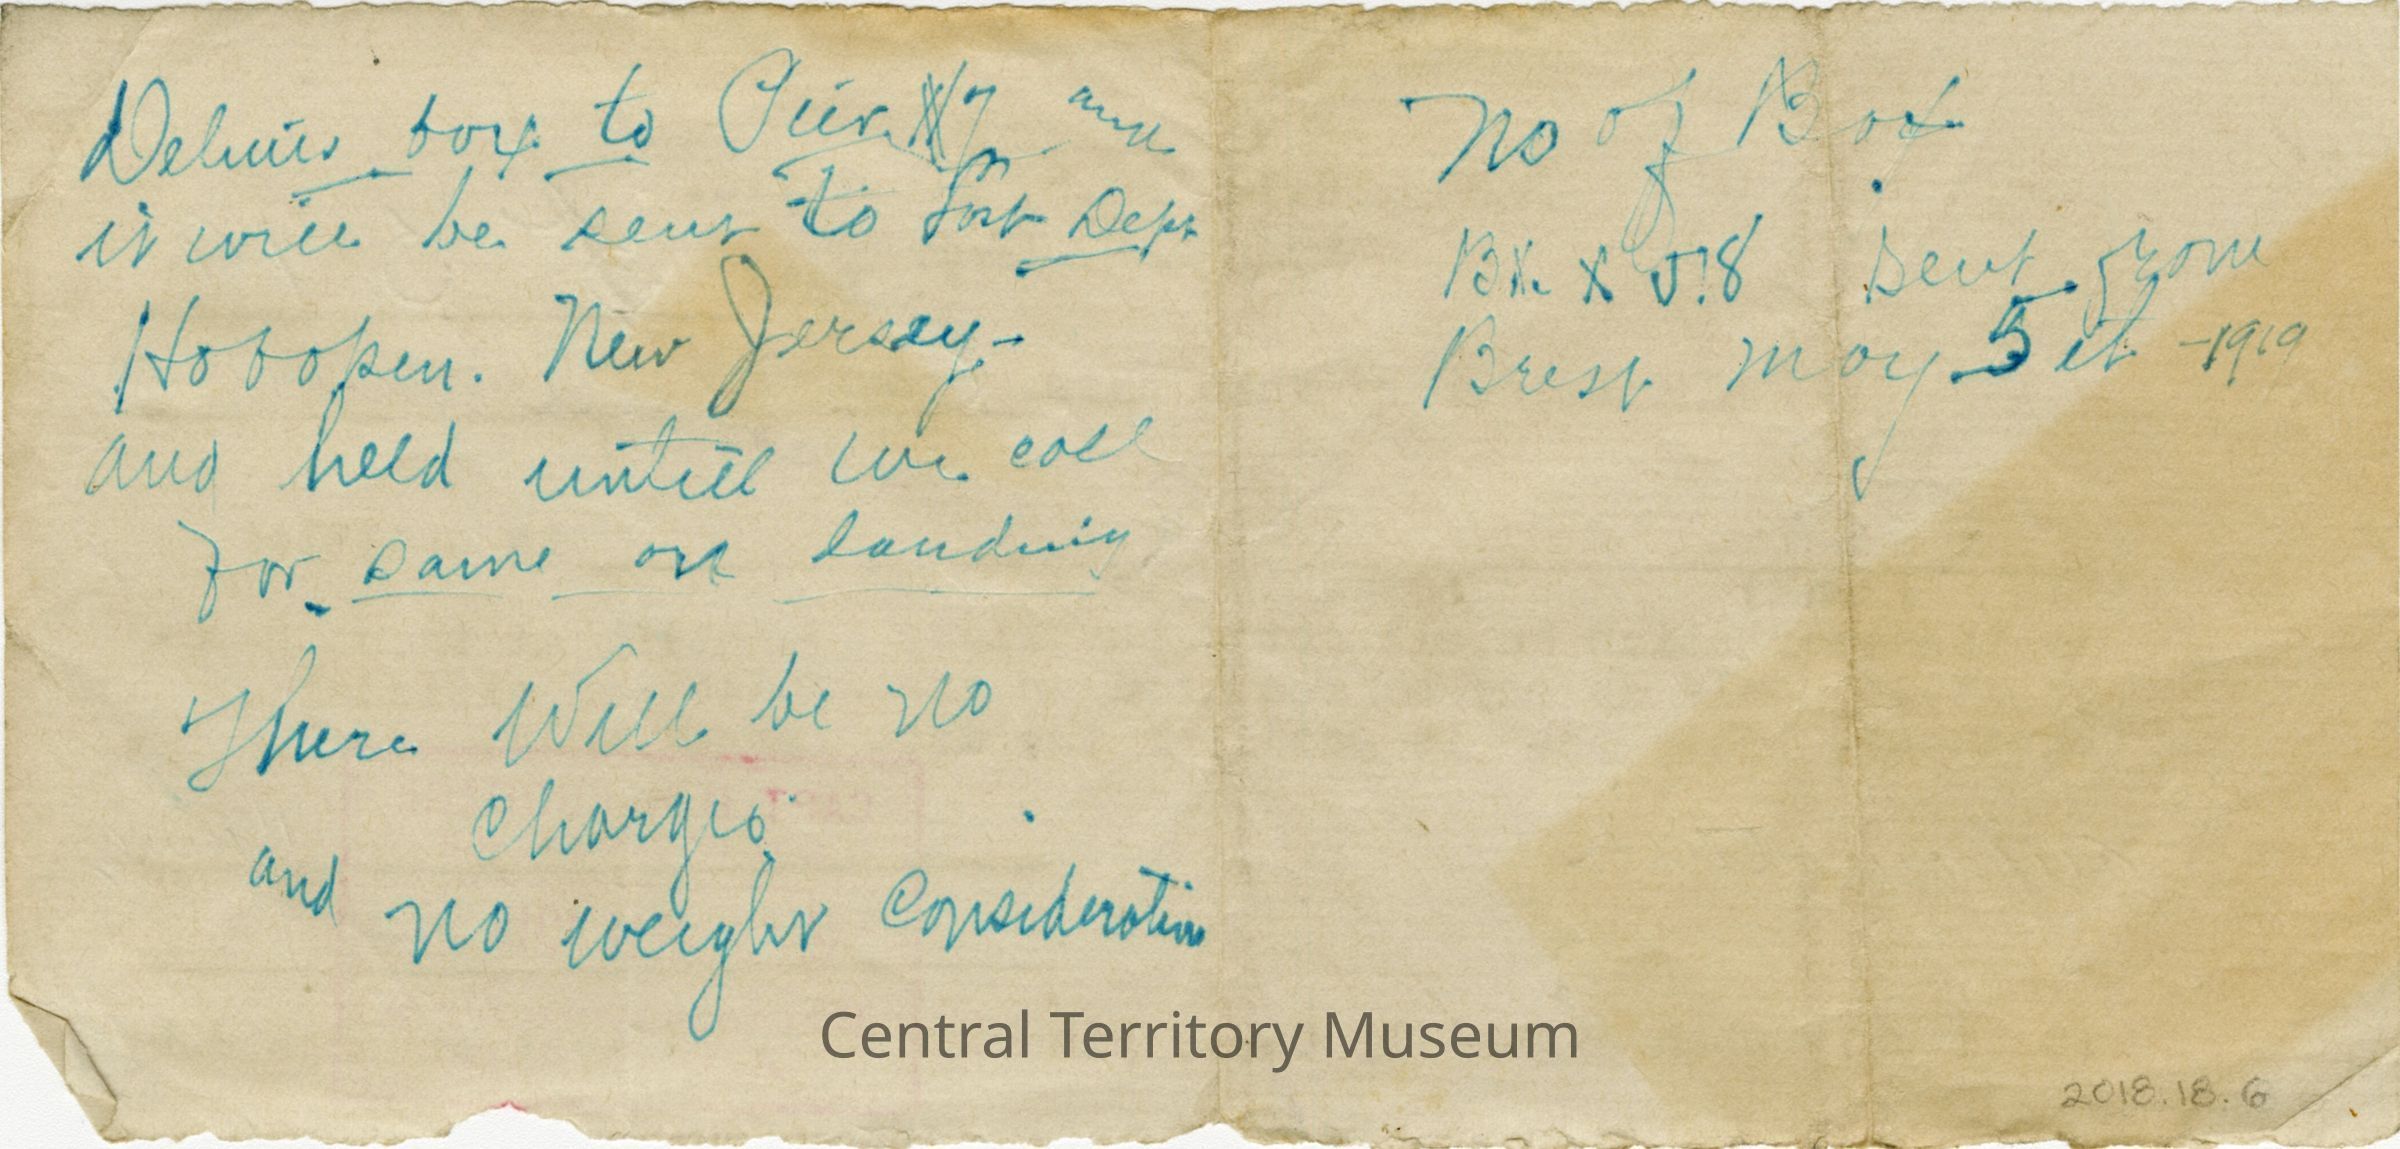 Deliver box to Pier 7 and
it will be sent to Lost Dept
Hoboken. New Jersey-
and held untill we call
for same on landing
There Will be no
Charges
and no weight Consideration
No of Box
Bx. X 518 Sent from
Brest May 5th -1919
Central Territory Museum
2018.18.6